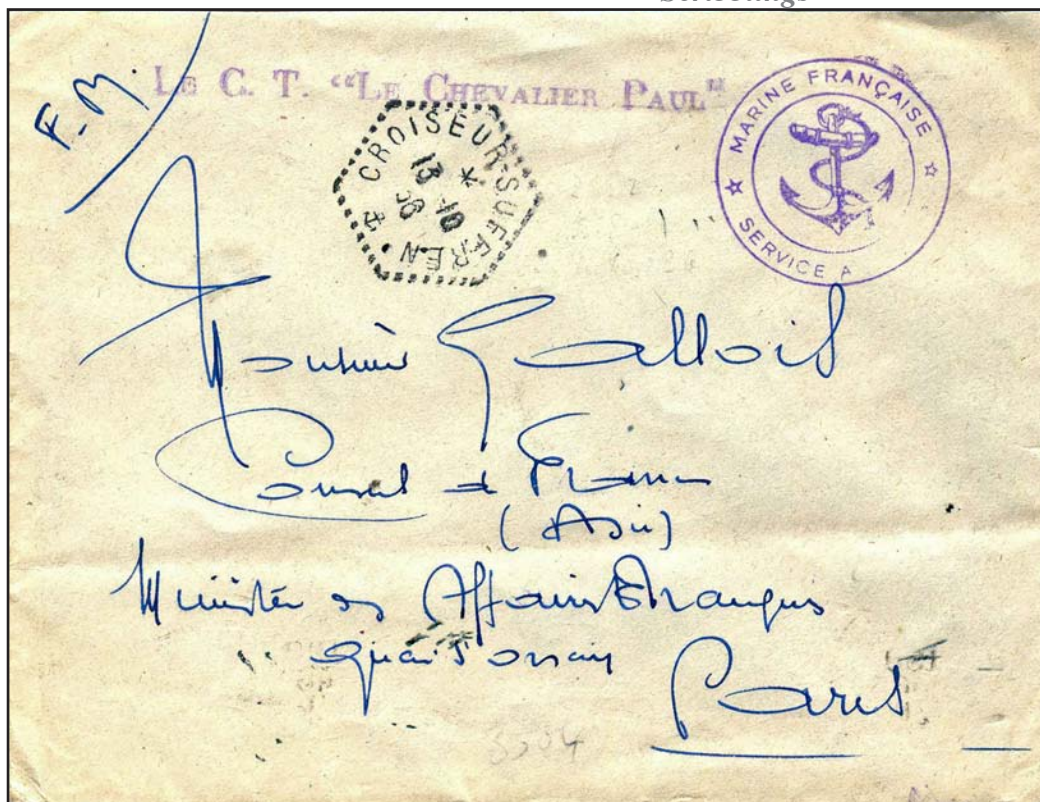 F.M.
LE C. T. "LE CHEVALIER PAUL"
CROISEUR SUFFREN
13 10
MARINE FRANÇAISE
SERVICE A
Monsieur Gallois
Consul de France
(Asie)
Ministère des Affaires Etrangères
Quai d'Orsay
Paris
3504